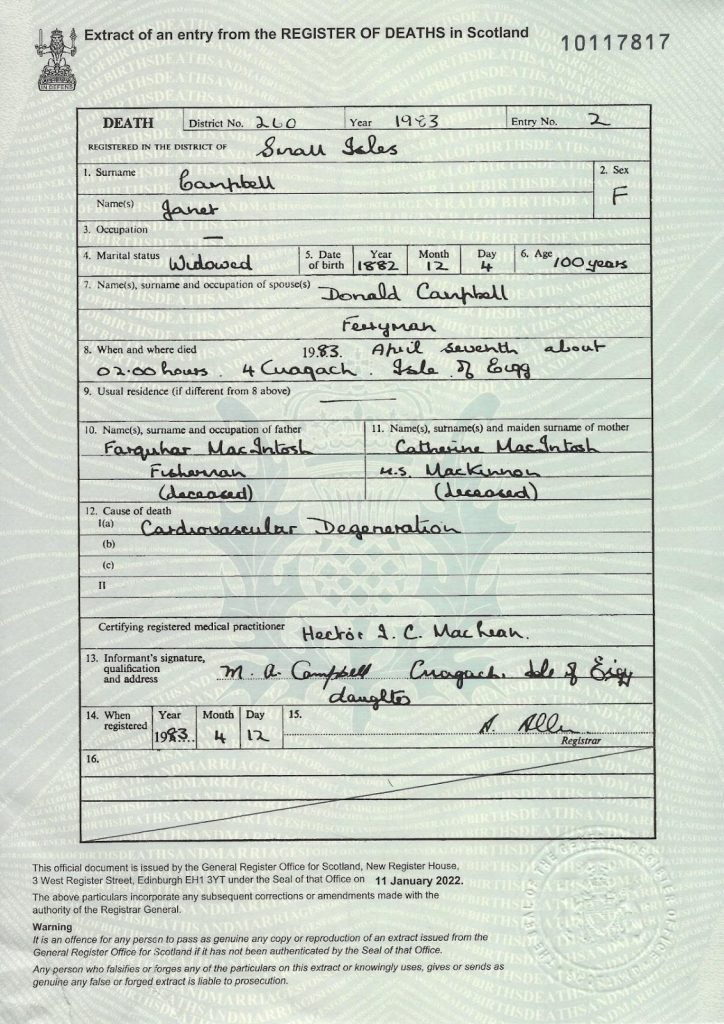 Extract of an entry from the REGISTER OF DEATHS in Scotland
10117817
IN DEFENS
DEATH District No. 260 Year 1983 Entry No. 2
REGISTERED IN THE DISTRICT OF Small Isles
1. Surname Campbell 2. Sex F
Name(s) Janet
3. Occupation —
4. Marital status Widowed 5. Date of birth Year 1882 Month 12 Day 4 6. Age 100 years
7. Name(s), surname and occupation of spouse(s) Donald Campbell
Ferryman
8. When and where died 1983. April seventh about
02.00 hours. 4 Cuagach. Isle of Eigg
9. Usual residence (if different from 8 above) —
10. Name(s), surname and occupation of father 11. Name(s), surname(s) and maiden surname of mother
Farquhar MacIntosh Catherine MacIntosh
Fisherman M.S. MacKinnon
(deceased) (deceased)
12. Cause of death
I(a) Cardiovascular Degeneration
(b)
(c)
II
Certifying registered medical practitioner Hector I. C. MacLean.
13. Informant's signature, qualification and address M. A. Campbell Cuagach. Isle of Eigg
daughter
14. When registered Year 1983 Month 4 Day 12 15. A. Allen
Registrar
16.
This official document is issued by the General Register Office for Scotland, New Register House,
3 West Register Street, Edinburgh EH1 3YT under the Seal of that Office on 11 January 2022.
The above particulars incorporate any subsequent corrections or amendments made with the
authority of the Registrar General.
Warning
It is an offence for any person to pass as genuine any copy or reproduction of an extract issued from the
General Register Office for Scotland if it has not been authenticated by the Seal of that Office.
Any person who falsifies or forges any of the particulars on this extract or knowingly uses, gives or sends as
genuine any false or forged extract is liable to prosecution.